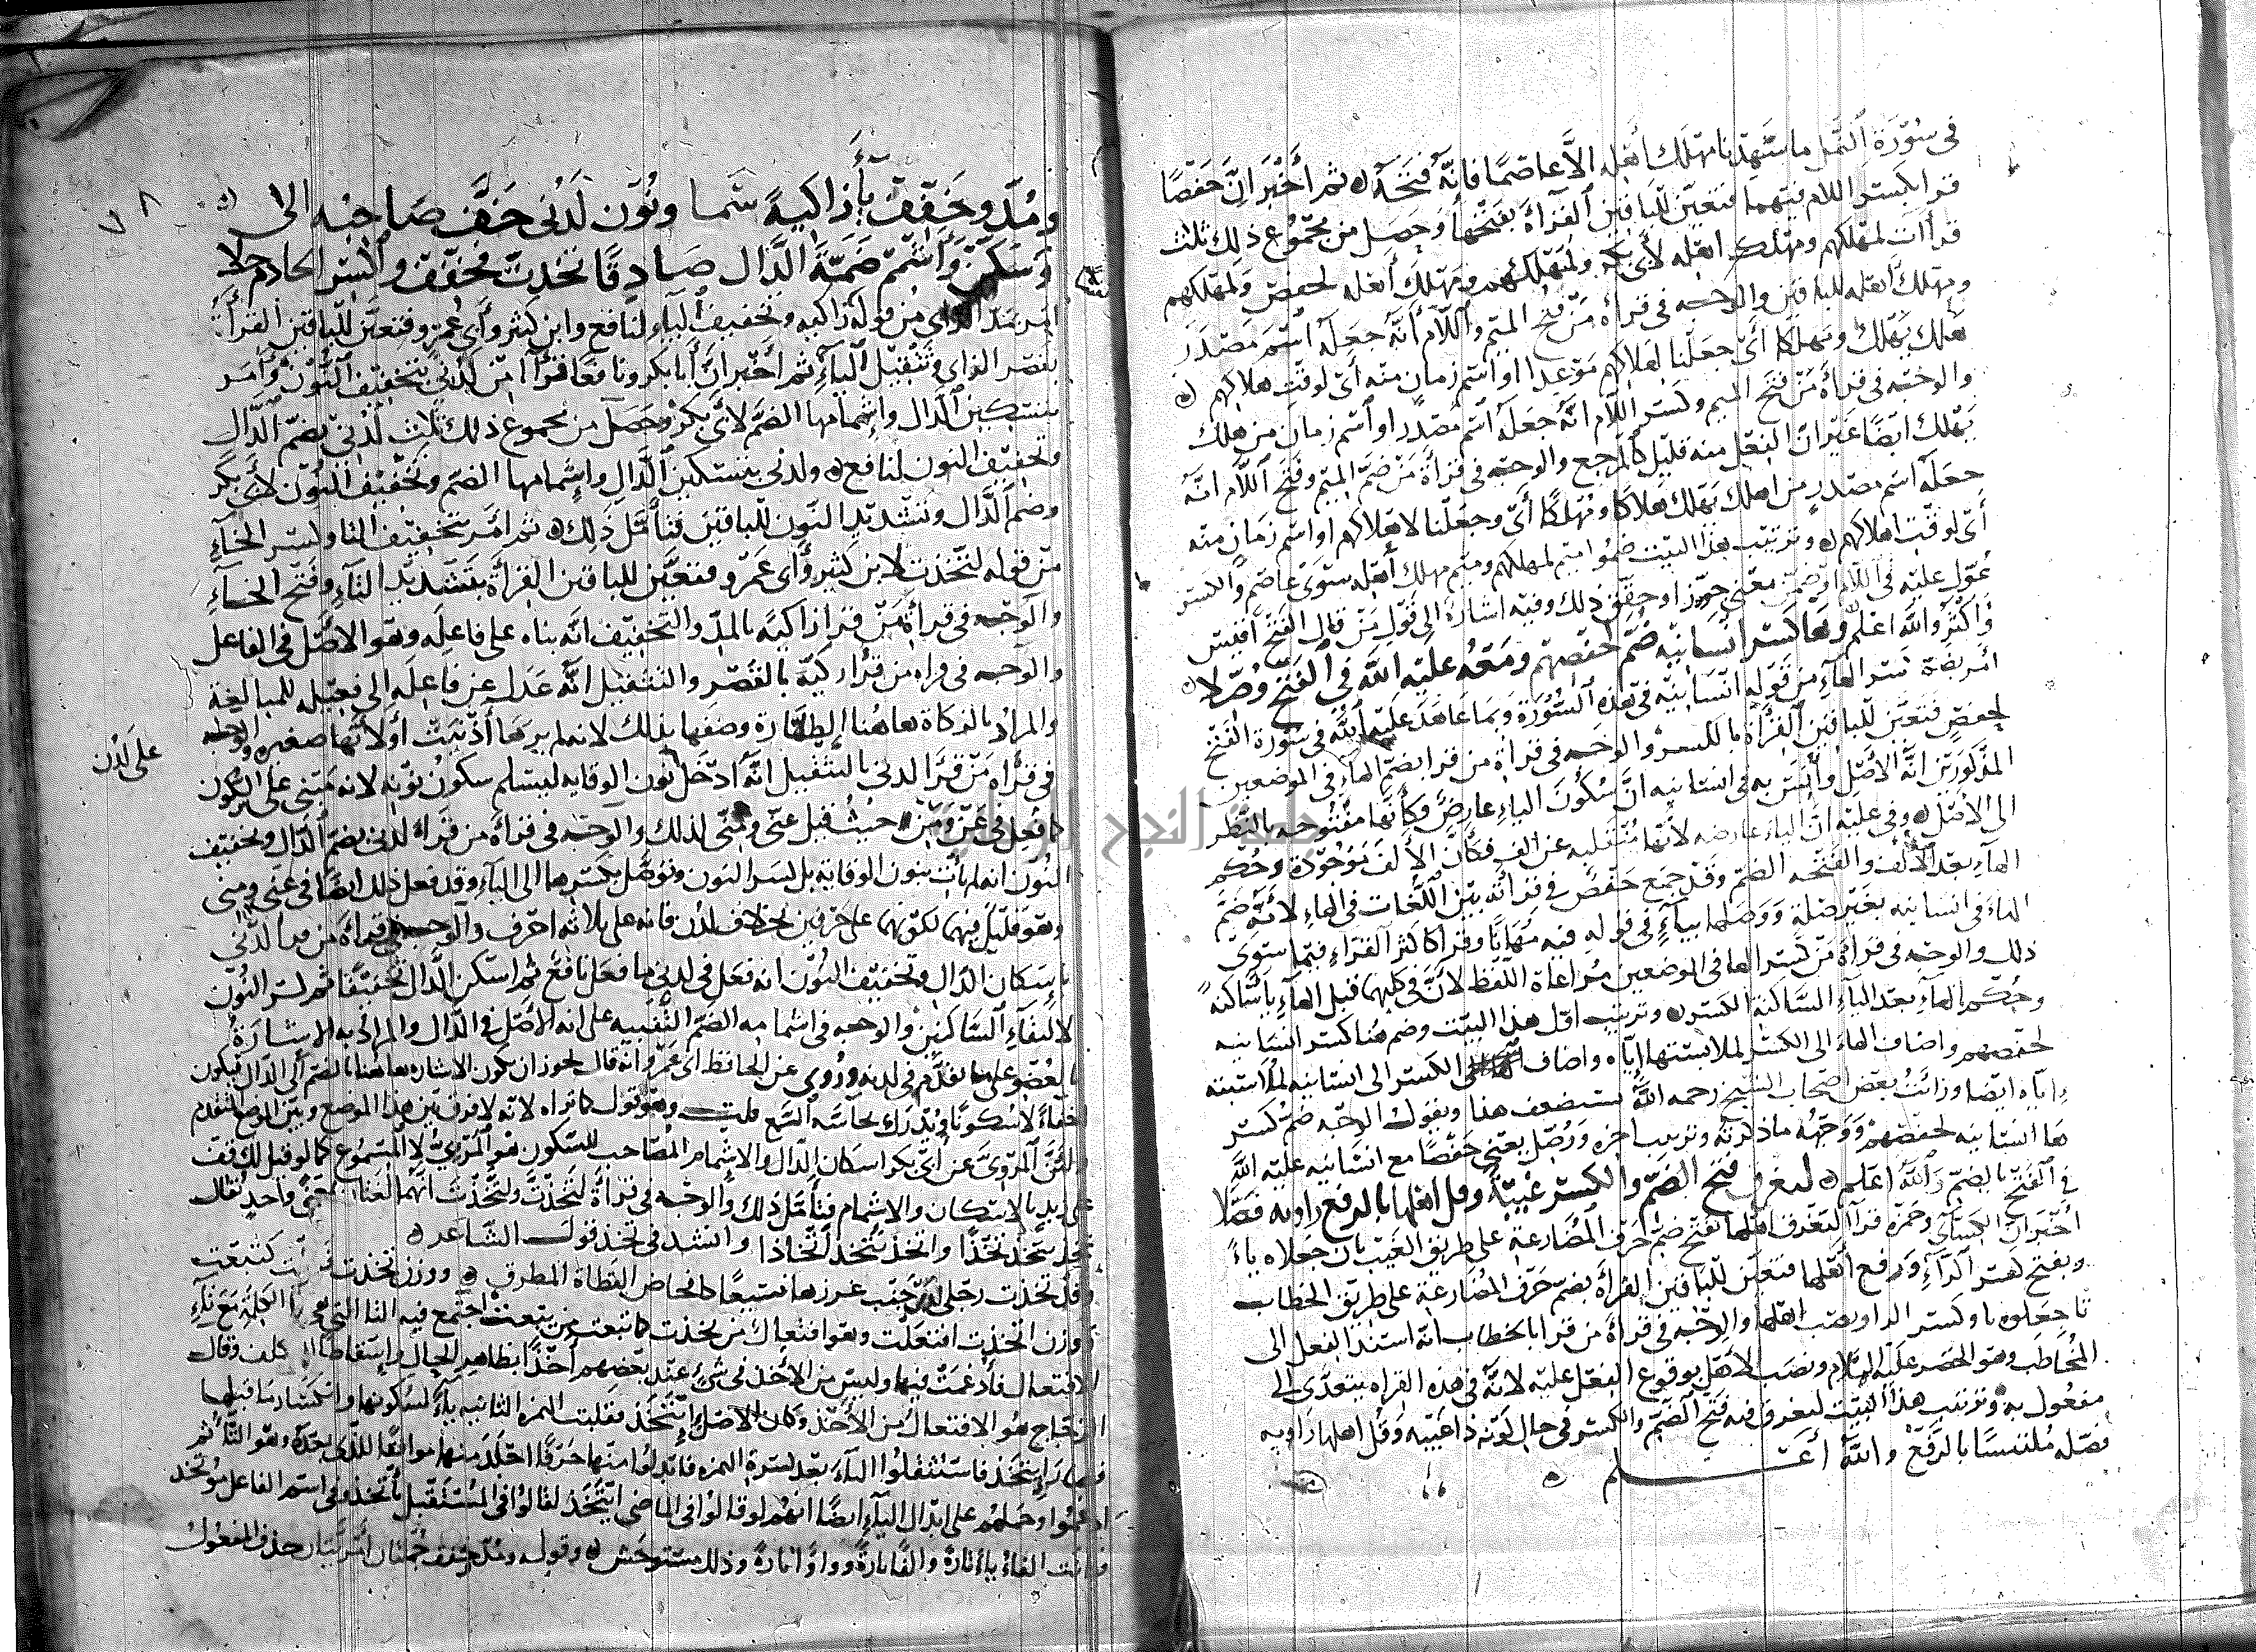 في سورة النمل ما شهدنا مهلك أهله إلا عاصما فانه فتحه ثم أخبر ان حفصا
قرا بكسر اللام فيهما فتعين للباقين القراءة بفتحها وحصل من مجموع ذلك ثلث
قرأات لمهلكهم ومهلك اهله لأبي بكر ولمهلكهم ومهلك أهله لحفص ولمهلكهم
ومهلك اهله للباقين والوجه في قرأة من فتح الميم واللام أنه جعله اسم مصدر
هلك يهلك ومهلكا أي جعلنا لهلاكهم موعدا او اسم زمان منه أي لوقت هلاكهم
والوجه في قرأة من فتح الميم وكسر اللام انه جعله اسم مصدر او اسم زمان من هلك
يهلك ايضا غير ان الفعل منه قليل كالمرجع والوجه في قرأة من ضم الميم وفتح اللام انه
جعله اسم مصدر من اهلك يهلك هلاكا ومهلكا أي وجعلنا لاهلاكهم او اسم زمان منه
أي لوقت اهلاكهم وترتيب هذا البيت ضموا ميم لمهلكهم وميم مهلك أهله سوى عاصم والكسر
عول عليه في اللام او ضمن معنى جوز او حقق ذلك وفيه اشارة الى قول من قال الفتح أقيس
وأكثر والله اعلم وها كسر انسانيه ضم لحفصهم ومعه عليه الله في الفتح وصلا
أمر بضمة كسر الهاء من قوله انسانيه في هذه السورة وبما عاهد عليه الله في سورة الفتح
لحفص فتعين للباقين القرأة بالكسر والوجه في قرأة من قرا بضم الهاء في الموضعين
المذكورين انه الأصل وأنس به في انسانيه ان سكون الياء عارض وكأنها مفتوحه بالنظر
الى الأصل وفي عليه ان الياء عارضه لانها منقلبه عن الف فكأن الألف موجودة وحكم
الهاء بعد الألف والفتحه الضم وقد جمع حفص في قرأته بين اللغات في الهاء لأنه ضم
الهاء في انسانيه بغير صلة ووصلها بياء في قوله فيه مهانا وقرا كاكثر القراء فيما سوى
ذلك والوجه في قرأة من كسر الها في الموضعين مراعاة اللفظ لأن في كليهما قبل الهاء ياء ساكنة
وحكم الهاء بعد الياء الساكنة الكسر وترتيب اول هذا البيت وضم هنا كسر انسانيه
لحفصهم واضاف الهاء الى الكسر لملابستها اياه واضاف الكسر الى انسانيه لملابسته
اياه ايضا ورأيت بعض اصحاب الشيخ رحمه الله يستضعف هذا ويقول الوجه ضم كسر
ها انسانيه لحفصهم ووجهه ما ذكرته وترتيب اخره وصل يعني حفصا مع انسانيه عليه الله
في الفتح بالضم والله اعلم لتغرق فتح الضم والكسر غيبة وقل اهلها بالرفع راويه فصلا
أخبر ان الكسائي وحمزة قرآ ليغرق اهلها بفتح ضم حرف المضارعة على طريق الغيب بان جعلاه ياء
وبفتح كسر الراء ورفع أهلها فتعين للباقين القرأة بضم حرف المضارعة على طريق الخطاب
بان جعلوه تا وكسر الرا ونصب اهلها والوجه في قرأة من قرا بالخطاب انه اسند الفعل الى
المخاطب وهو الخضر عليه السلام ونصب الأهل بوقوع الفعل عليه لانه في هذه القراه يتعدى الى
مفعول به وترتيب هذا البيت ليغرق فيه فتح الضم والكسر في حال كونه ذا غيبه وقل اهلها راويه
فصله ملتبسا بالرفع والله أعلم
ومد وخفف ياء زاكية سما ونون لدني خف صاحبه الى
وسكن وأشمم ضمة الدال صادقا تخذت فخفف واكسر الخاء دم حلا
امر بمد الزاي من قوله زاكيه وتخفيف الياء لنافع وابن كثير وأبي عمرو فتعين للباقين القرأة
بقصر الزاي وتثقيل الياء ثم أخبر ان أبا بكر ونافعا قرآ من لدني بتخفيف النون وأمر
بتسكين الدال وإشمامها الضم لأبي بكر وحصل من مجموع ذلك ثلث لدني بضم الدال
وتخفيف النون لنافع ولدني بتسكين الدال وإشمامها الضم وتخفيف النون لأبي بكر
وضم الدال وتشديد النون للباقين فتأمل ذلك ثم امر بتخفيف التا وكسر الخاء
من قوله لتخذت لابن كثير وأبي عمرو فتعين للباقين القرأة بتشديد التاء وفتح الخاء
والوجه في قرأة من قرا زاكية بالمد والتخفيف انه بناه على فاعله وهو الاصل في الفاعل
والوجه في قراه من قرأ زكية بالقصر والتثقيل انه عدل عن فاعله الى فعيله للمبالغة
والمراد بالزكاة هاهنا الطهارة وصفها بذلك لانه لم يرها أذنبت أو لأنها صغيره والوجه
في قرأة من قرأ لدني بالتثقيل انه أدخل نون الوقايه ليسلم سكون نونه لانه مبني على السكون
على لدن
كما فعل في عن ومن حيث قيل عني ومني لذلك والوجه في قرأة من قرأ لدني بضم الدال وتخفيف
النون انه لم يأت بنون الوقاية بل كسر النون وتوصل بكسرها الى الياء وقد فعل ذلك ايضا في عني ومني
وهو قليل فيهما لكونهما على حرفين بخلاف لدن فانه على ثلاثه احرف والوجه في قرأة من قرا لدني
باسكان الدال وتخفيف النون انه فعل في لدني ما فعل نافع ثم اسكن الدال تخفيفا ثم كسر النون
لالتقاء الساكنين والوجه في اشمامه الضم التنبيه على انه الأصل في الدال والمراد به الاشارة
بالعضو على ما تقدم في لدنه وروي عن الحافظ ابي عمرو أنه قال يجوز ان يكون الاشاره هاهنا بالضم الى الدال فيكون
اخفاء لا سكونا فيدرك بحاسة السمع قلت وهو قول كما تراه لانه لا فرق بين هذا الموضع وبين الموضع المتقدم
ولأن المروي عن أبي بكر اسكان الدال والاشمام المصاحب للسكون هو المرئي لا المسموع كما لو قيل لك قف
على زيد بالاسكان والاشمام فتأمل ذلك والوجه في قرأة لتخذت ولتخذت انهما لغتان بمعنى واحد يقال
تخذ يتخذ تخذا واتخذ يتخذ اتخاذا وانشد في تخذ قول الشاعر
وقد تخذت رجلي لدى جنب غرزها نسيفا كافحوص القطاة المطرق ووزن تخذت كتبعت
ووزن اتخذت افتعلت وهو افتعال من تخذت كاتبعت من تبعت اجتمع فيه التا التي هي الكلمة مع تاء
الافتعال فأدغمت فيها وليس من الأخذ في شيء عند بعضهم أخذا بظاهر الحال وإسقاطا وقال
الزجاج هو الافتعال من الأخذ وكان الاصل إئتخذ فقلبت الهمزة الثانيه ياء لسكونها وانكسار ما قبلها
فصار إيتخذ فاستثقلوا الياء بعد كسرة الهمزه فابدلوا منها حرفا اجلد منها موافقا للذي بعده وهو التا ثم
ادغموا وحملهم على ابدال الياء ايضا انهم لو قالوا في الماضي ايتخذ لقالوا في المستقبل ياتخذ وفي اسم الفاعل موتخذ
فكانت الفاء ياء تارة والفا تارة وواوا تارة وذلك مستوحش وقوله ومد وخفف جملتان امريتان حذف المفعول